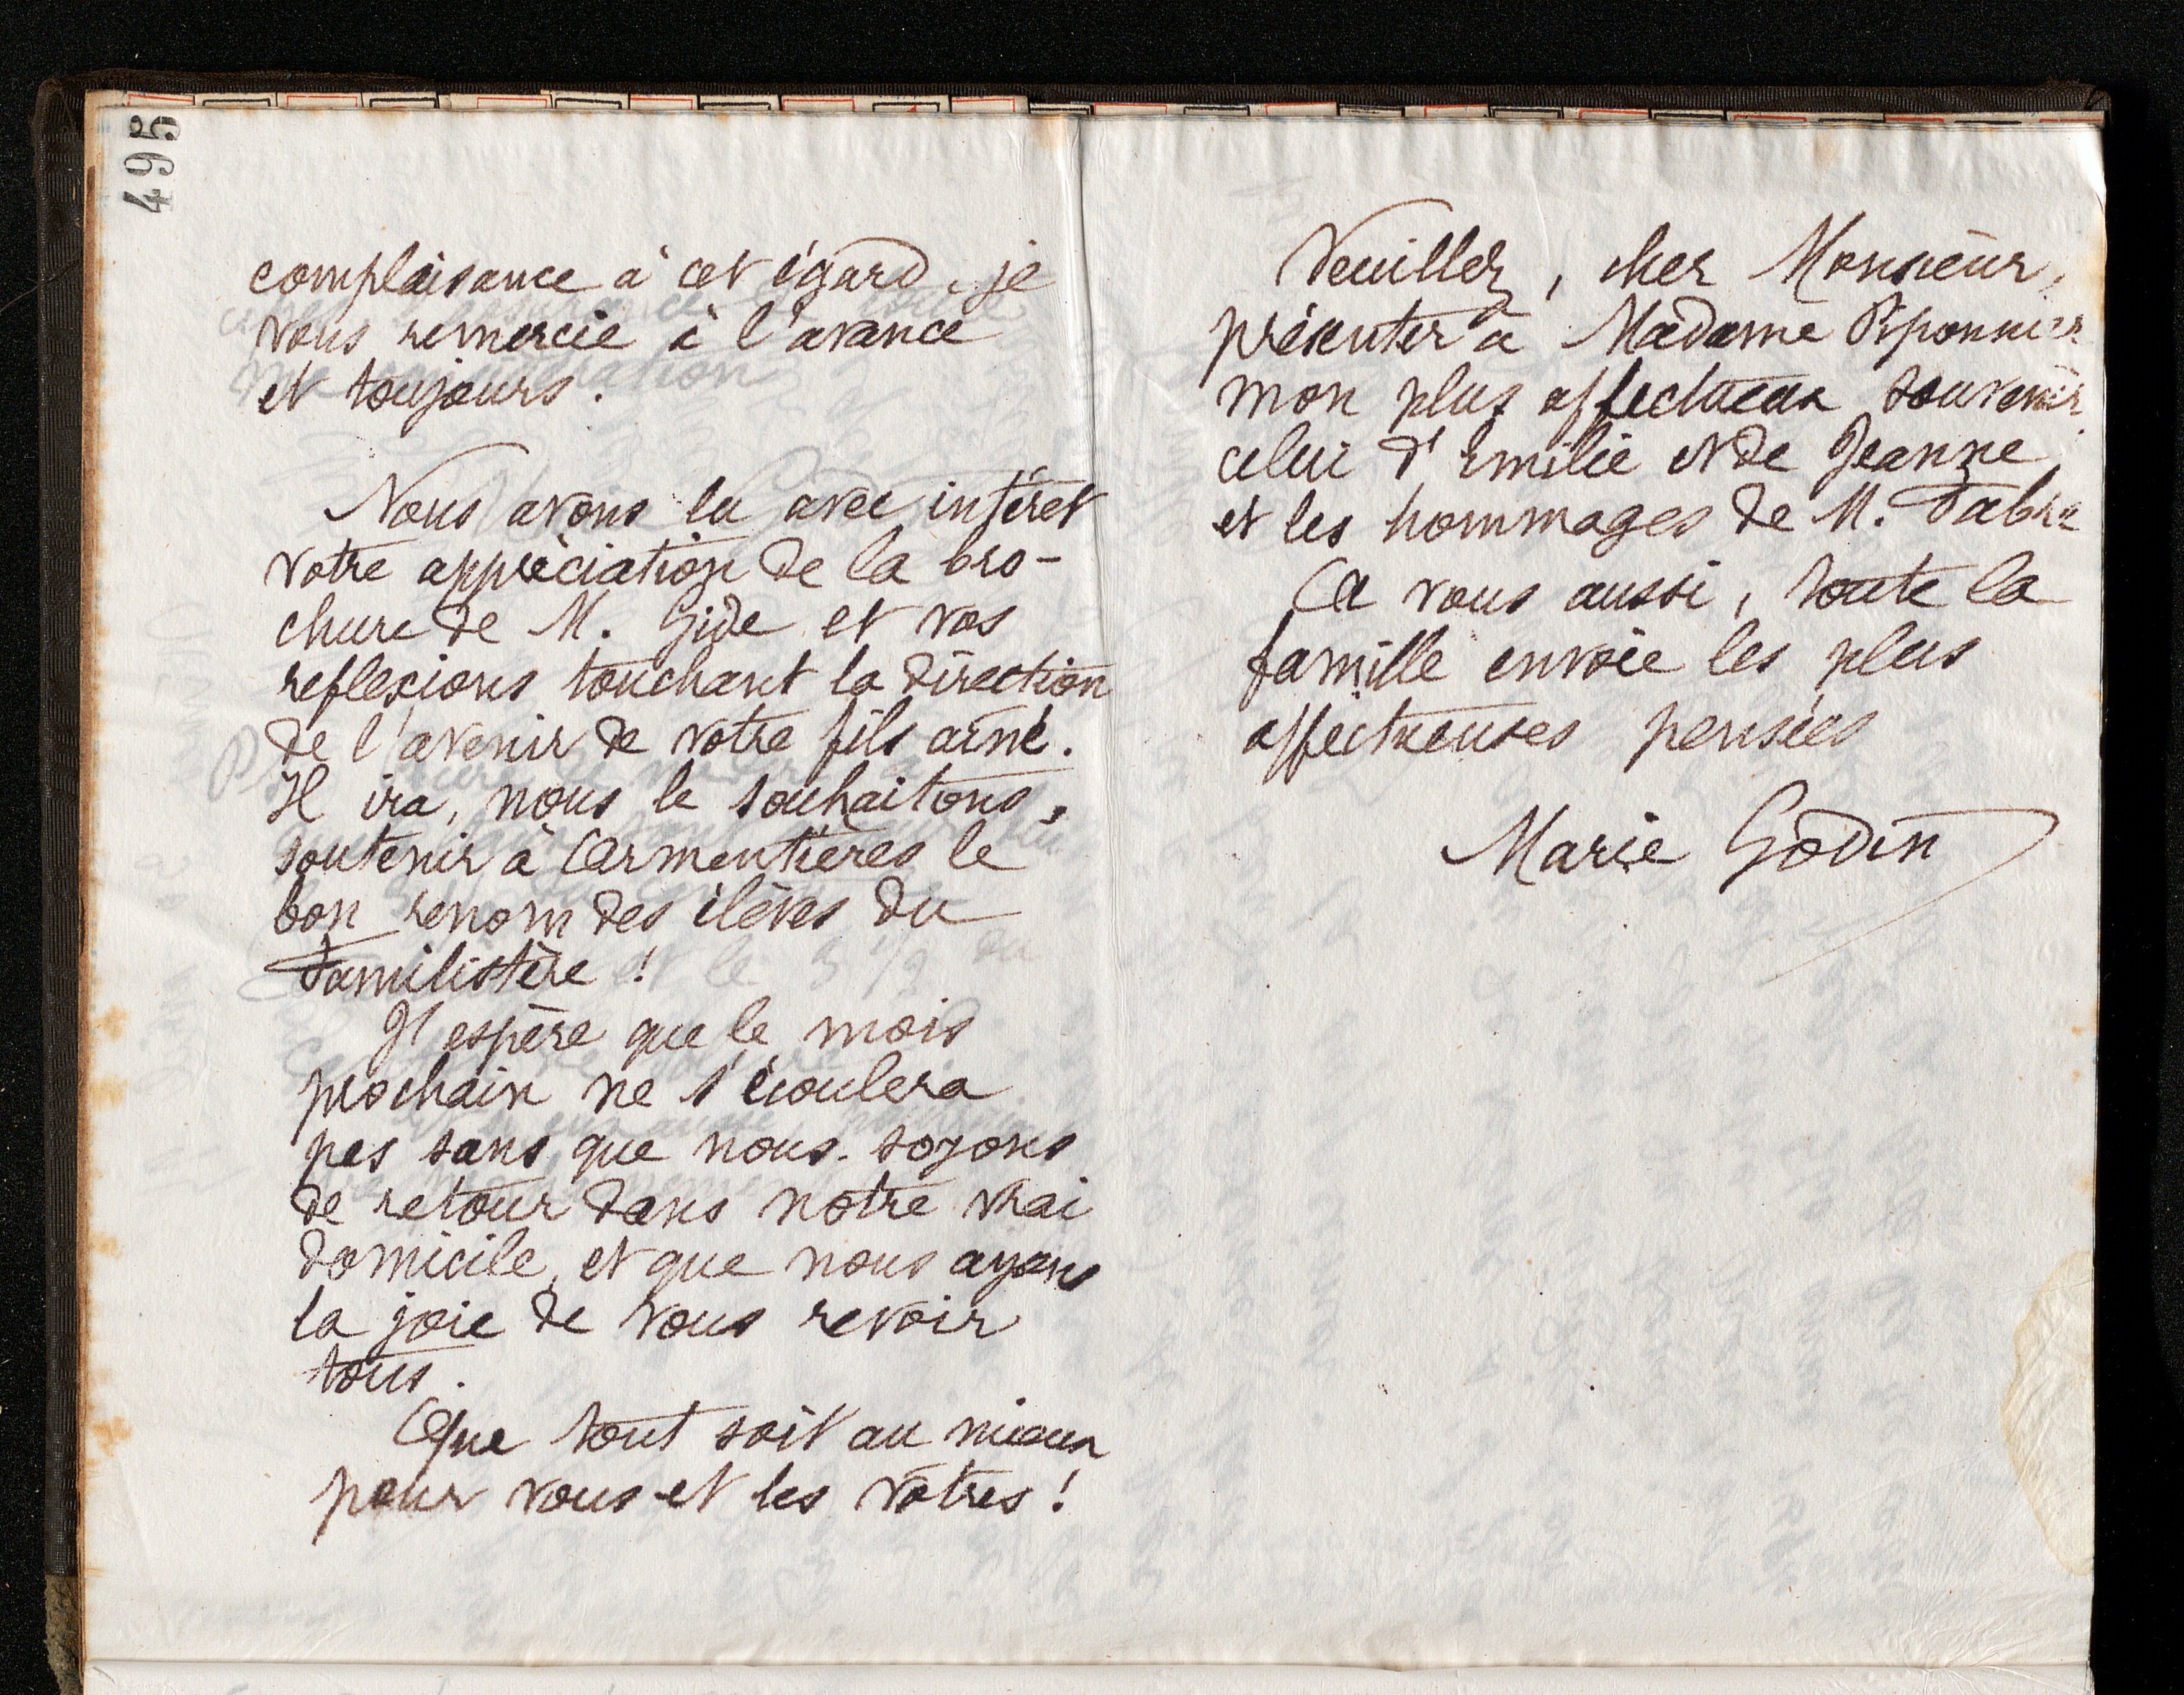 495
complaisance à cet égard, je
vous remercie à l'avance
et toujours.
Nous avons lu avec intérêt
votre appréciation de la bro-
chure de M. Gide et vos
reflexions touchant la direction
de l'avenir de votre fils aîné.
Il ira, nous le souhaitons,
soutenir à Armentières le
bon renom des élèves du
Familistère !
J'espère que le mois
prochain ne s'écoulera
pas sans que nous soyons
de retour dans notre vrai
domicile, et que nous ayons
la joie de vous revoir
tous.
Que tout soit au mieux
pour vous et les vôtres !
Veuillez, cher Monsieur,
présenter à Madame Piponnier
mon plus affectueux souvenir
celui d'Emilie et de Jeanne,
et les hommages de M. Fabre
A vous aussi, toute la
famille envoie les plus
affectueuses pensées
Marie Godin